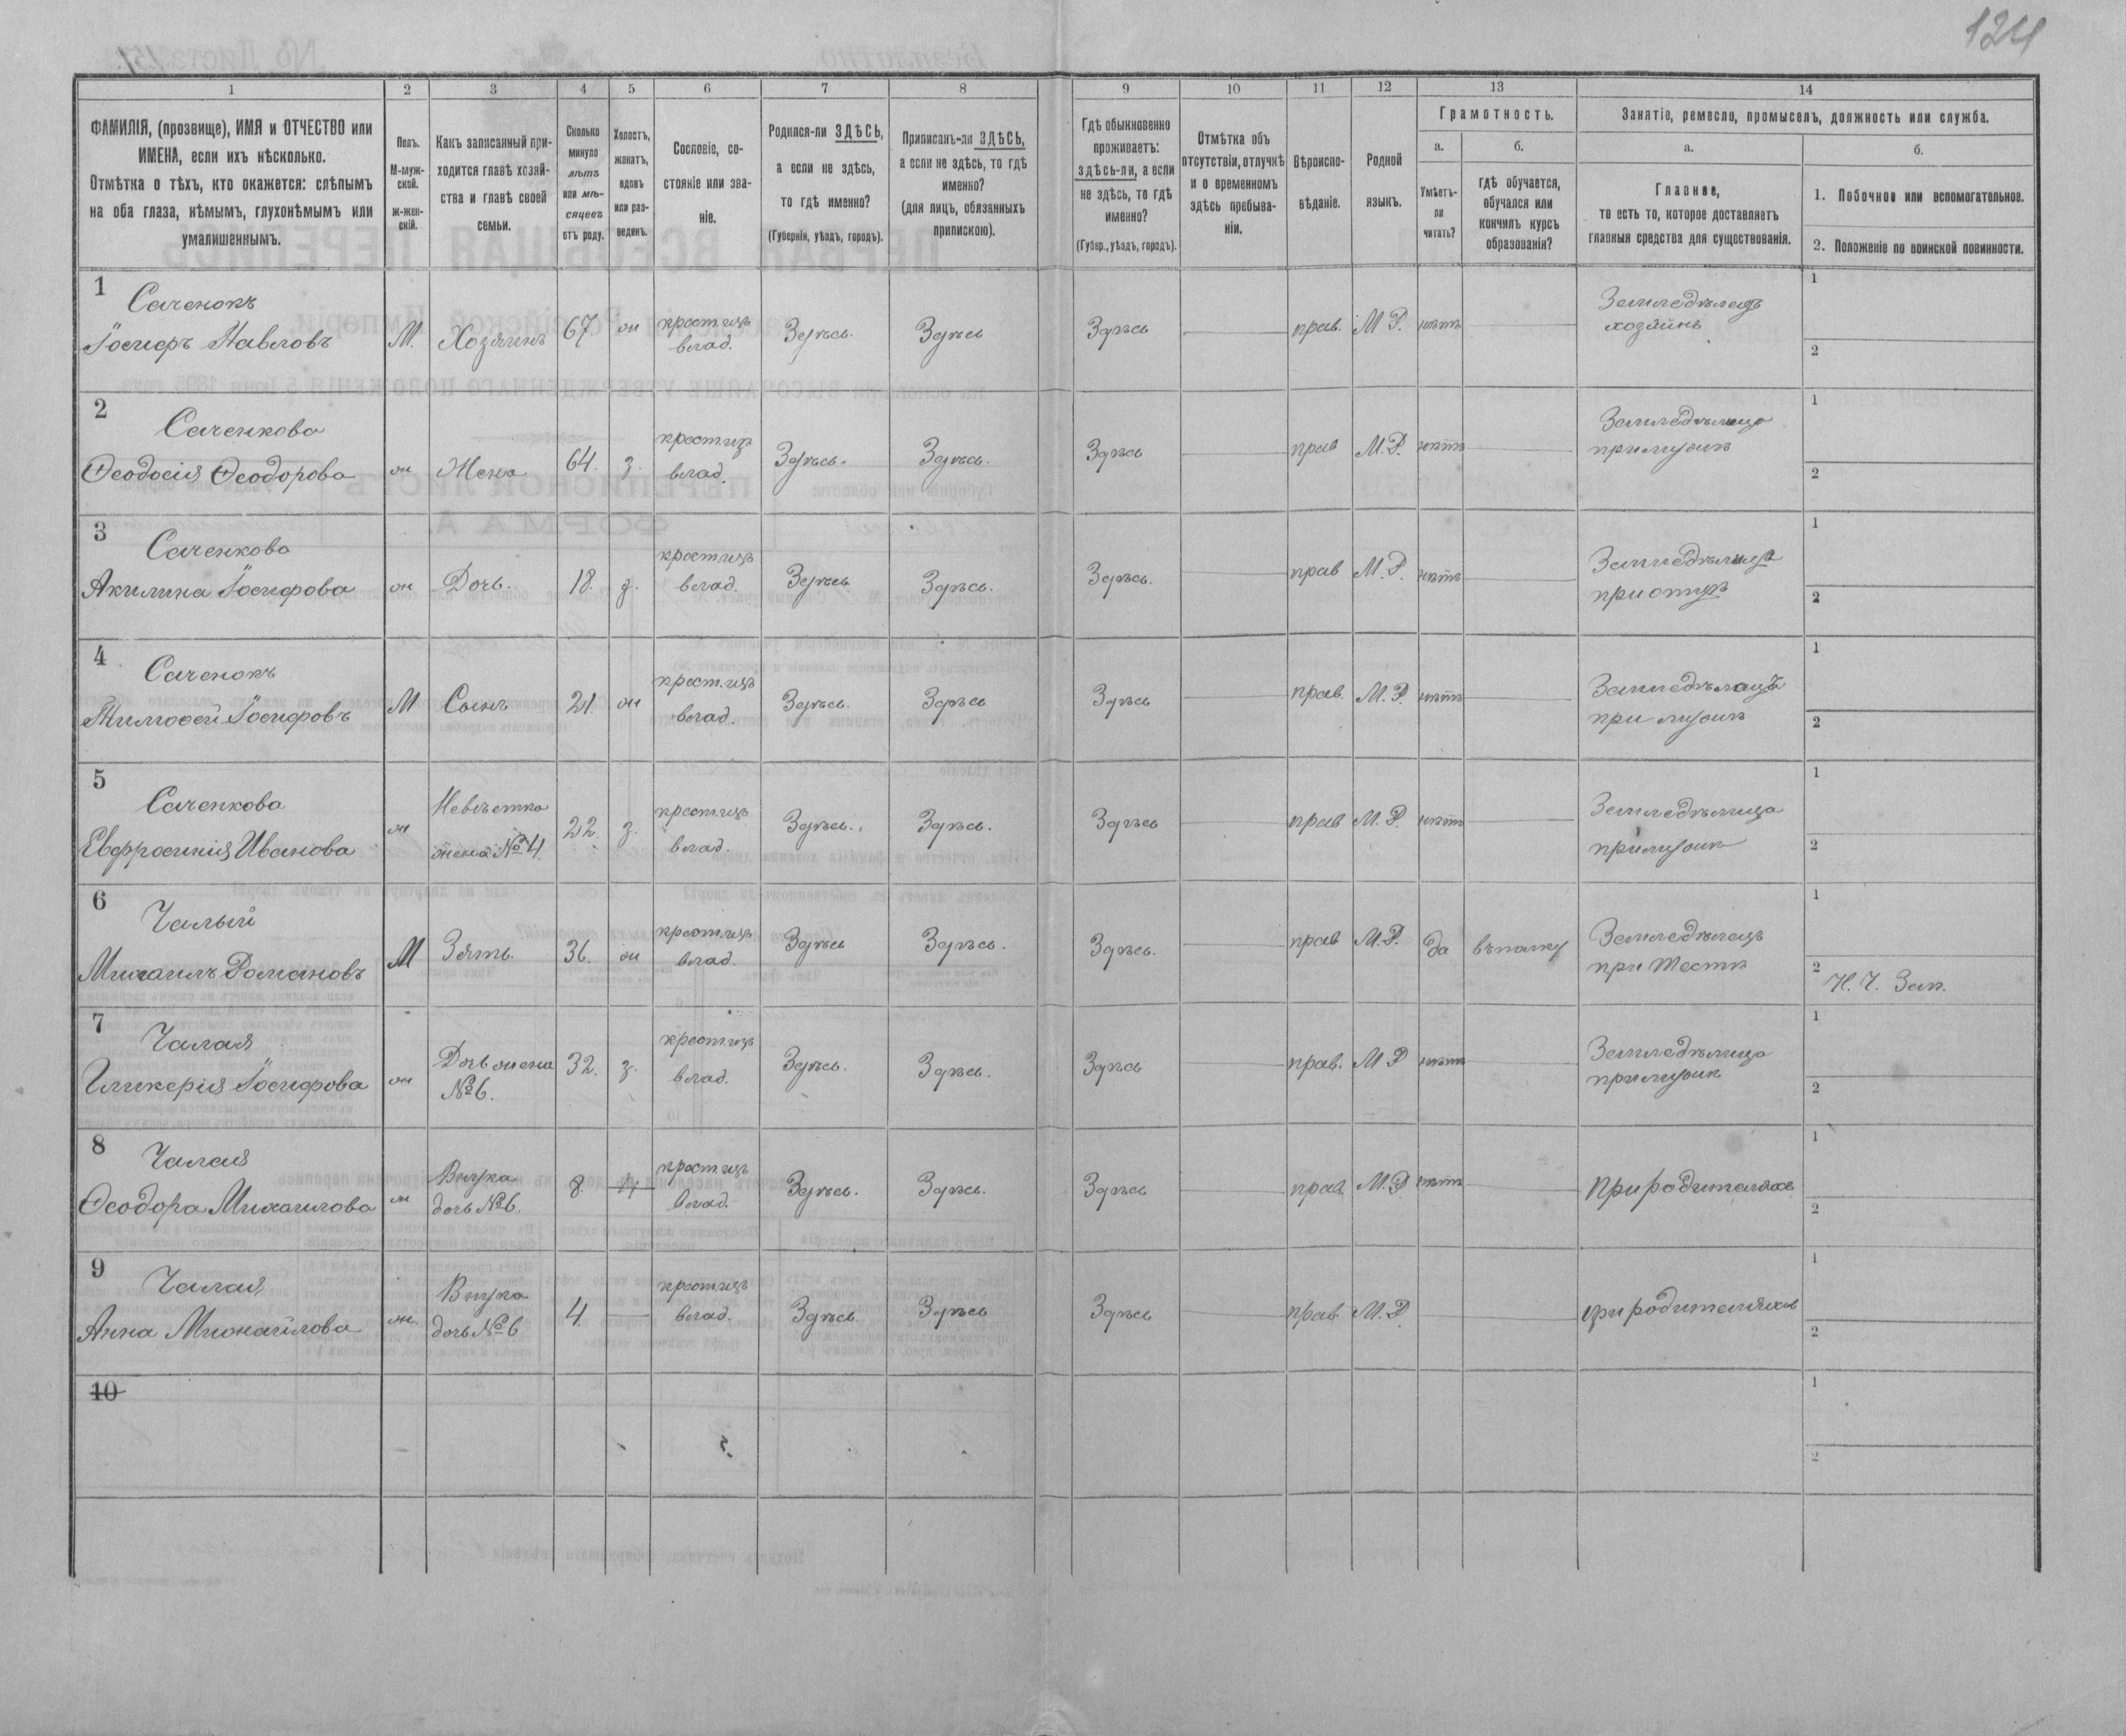 124
1 2 3 4 5 6 7 8 9 10 11 12 13 14
ФАМИЛІЯ, (прозвище), ИМЯ и ОТЧЕСТВО или
ИМЕНА, если ихъ нѣсколько.
Отмѣтка о тѣхъ, кто окажется: слѣпымъ
на оба глаза, нѣмымъ, глухонѣмымъ или
умалишеннымъ.
Полъ.
М-муж-
ской.
Ж-жен-
скій.
Какъ записанный при-
ходится главѣ хозяй-
ства и главѣ своей
семьи.
Сколько
минуло
лѣтъ
или мѣ-
сяцевъ
отъ роду.
Холостъ,
женатъ,
вдовъ
или раз-
веденъ.
Сословіе, со-
стояніе или зва-
ніе.
Родился-ли ЗДѢСЬ,
а если не здѣсь,
то гдѣ именно?
(Губернія, уѣздъ, городъ).
Приписанъ-ли ЗДѢСЬ,
а если не здѣсь, то гдѣ
именно?
(для лицъ, обязанныхъ
припискою).
Гдѣ обыкновенно
проживаетъ:
здѣсь-ли, а если
не здѣсь, то гдѣ
именно?
(Губер., уѣздъ, городъ).
Отмѣтка объ
отсутствіи, отлучкѣ
и о временномъ
здѣсь пребыва-
ніи.
Вѣроиспо-
вѣданіе.
Родной
языкъ.
Грамотность.
а.
Умѣетъ-
ли
читать?
б.
гдѣ обучается,
обучался или
кончилъ курсъ
образованія?
Занятіе, ремесло, промыселъ, должность или служба.
а.
Главное,
то есть то, которое доставляетъ
главныя средства для существованія.
б.
1. Побочное или вспомогательное.
2. Положеніе по воинской повинности.
1
Саченокъ
Іосифъ Павловъ
М. Хозяинъ 67. ж
крест. изъ
влад.
Здѣсь. Здѣсь Здѣсь прав. М. Р. нѣтъ
Земледѣлецъ
хозяинъ
1
2
2
Саченкова
Ѳеодосія Ѳеодорова
ж Жена 64. з.
крест. изъ
влад.
Здѣсь. Здѣсь. Здѣсь прав М. Р. нѣтъ
Земледѣлица
при мужѣ
1
2
3
Саченкова
Акилина Іосифова
ж Дочь. 18. д.
крест. изъ
влад.
Здѣсь Здѣсь. Здѣсь. прав М. Р. нѣтъ
Земледѣлица
при отцѣ
1
2
4
Саченокъ
Тимоѳей Іосифовъ
М Сынъ 21. ж
крест. изъ
влад.
Здѣсь. Здѣсь Здѣсь прав. М. Р. нѣтъ
1
2
5
Саченкова
Евфросинія Иванова
ж
Невѣстка
жена № 4.
22. з.
крест. изъ
влад.
Здѣсь. Здѣсь. Здѣсь прав М. Р. нѣтъ
Земледѣлица
при мужѣ
1
2
6
Чалый
Михаилъ Романовъ
М Зять. 36. ж
крест. изъ
влад.
Здѣсь Здѣсь. Здѣсь. прав М. Р. да
Земледѣлецъ
при Тестѣ
1
2
Н. Ч. Зап.
7
Чалая
Гликерія Іосифова
ж
Дочь жена
№ 6.
32. з.
крест. изъ
влад.
Здѣсь. Здѣсь. Здѣсь прав. М. Р нѣтъ
Земледѣлица
при мужѣ
1
2
8
Чалая
Ѳеодора Михаилова
ж
Внука
дочь № 6.
8.
крест. изъ
влад.
Здѣсь. Здѣсь. Здѣсь прав. М. Р. нѣтъ
при родителяхъ
1
2
9
Чалая
Анна Михайлова
ж.
Внука
дочь № 6
4.
крест. изъ
влад.
Здѣсь. Здѣсь Здѣсь прав. М. Р.
при родителяхъ
1
2
10
1
2